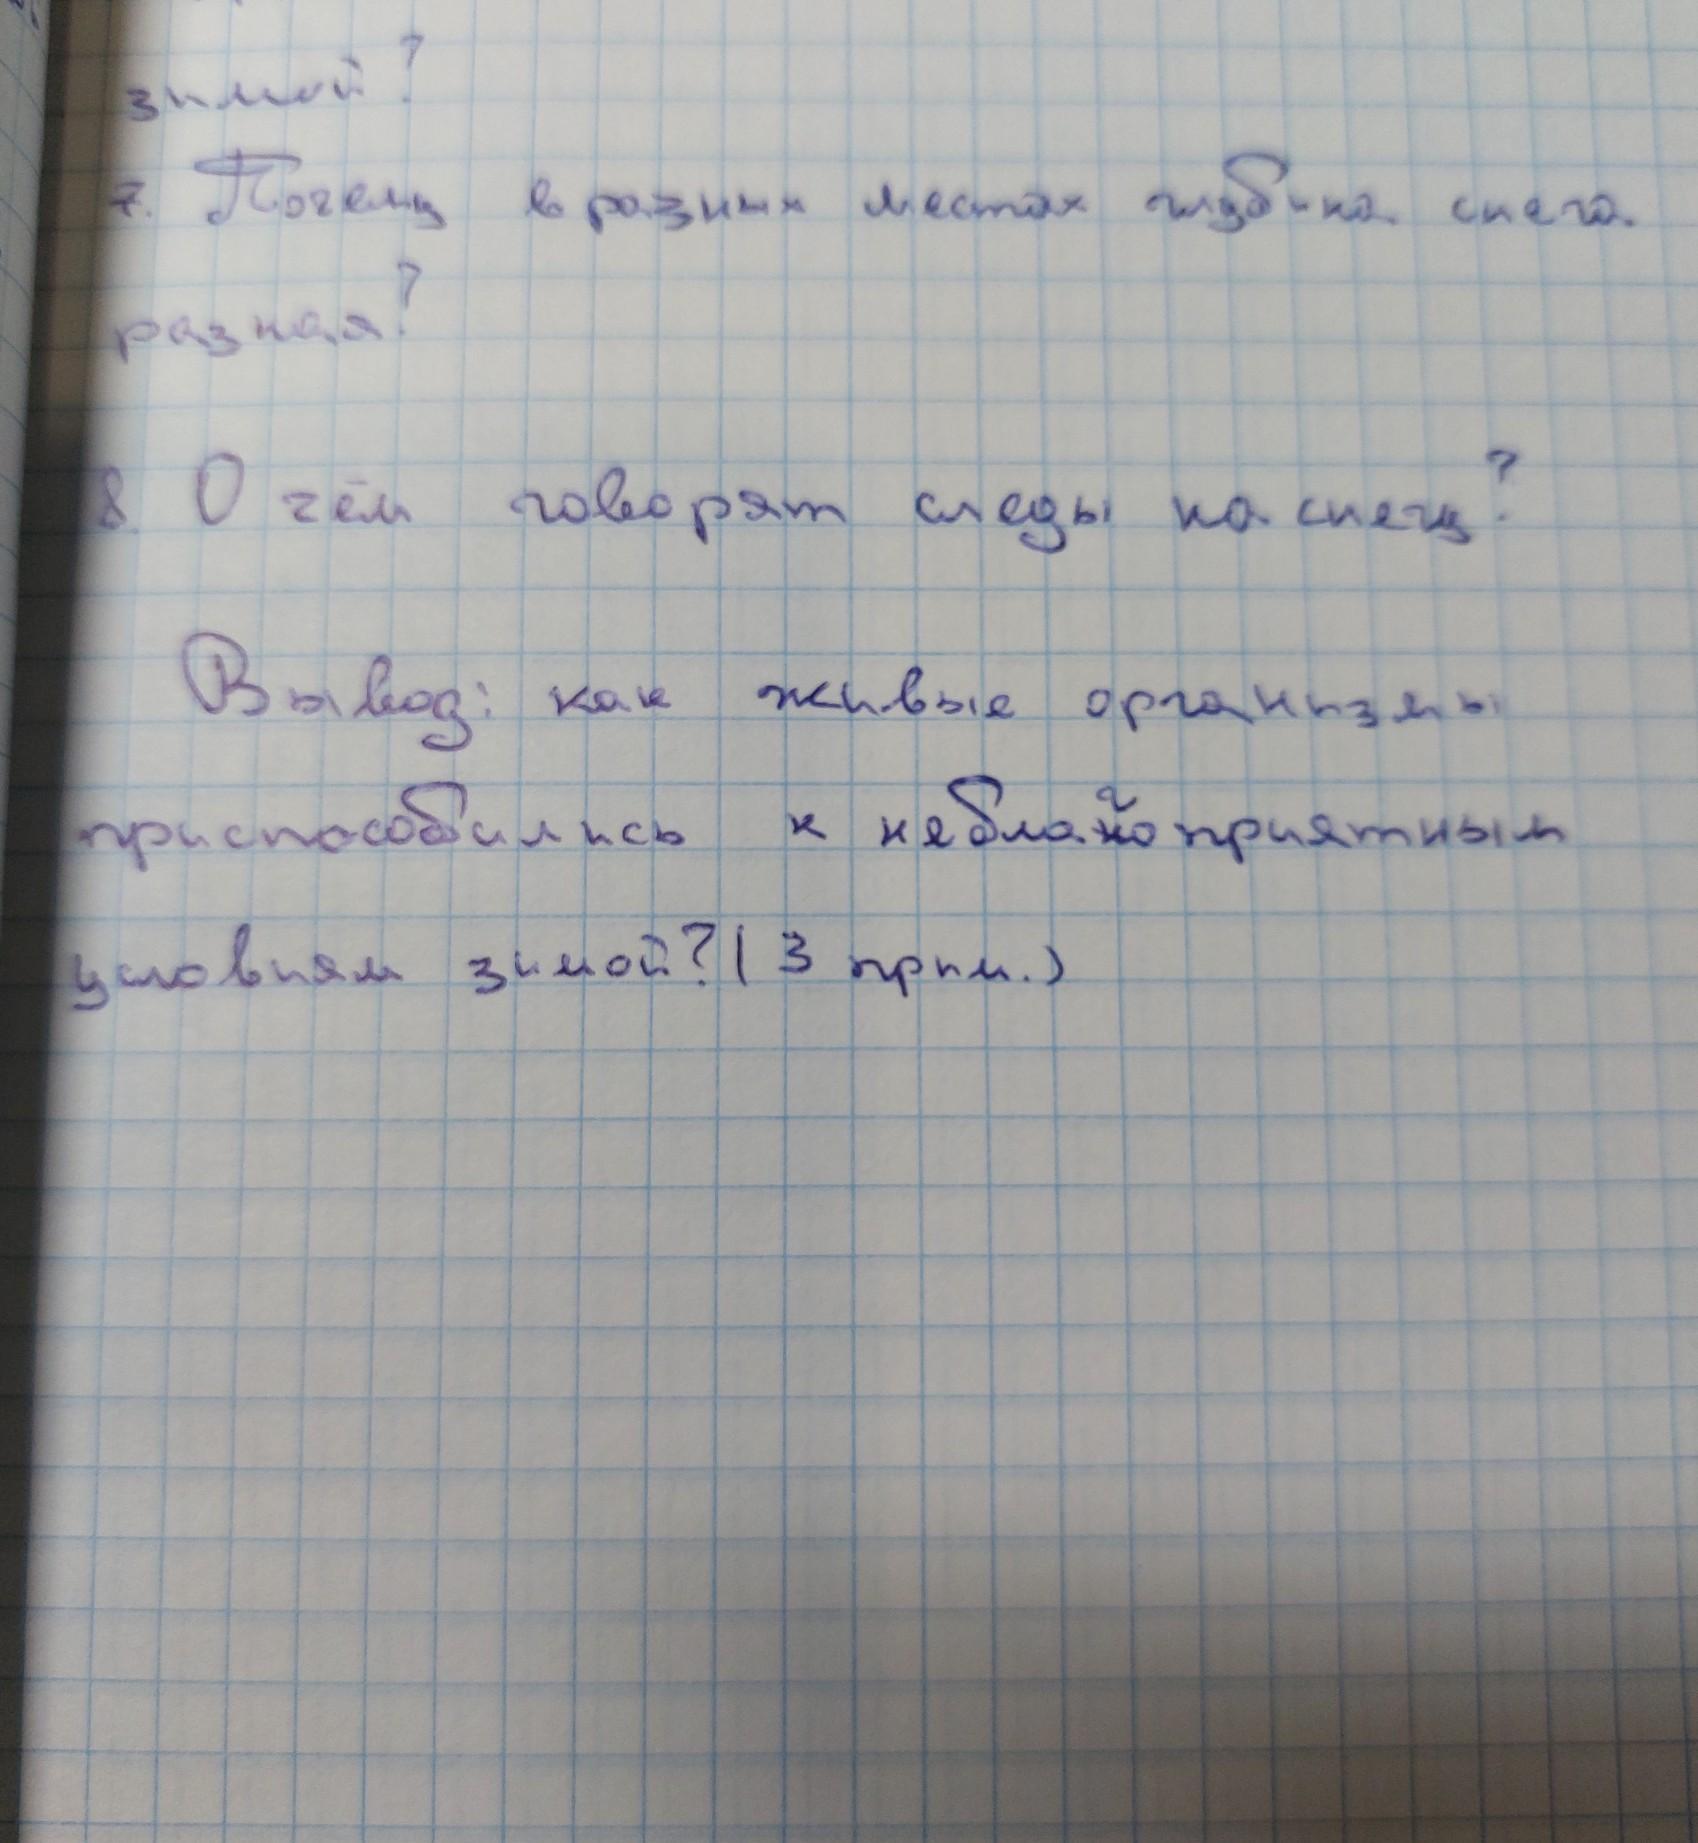 зимой?
7. Почему в разных местах глубина снега
разная?
8. О чём говорят следы на снегу?
Вывод: как живые организмы
приспособились к неблагоприятным
условиям зимой? (3 прим.)